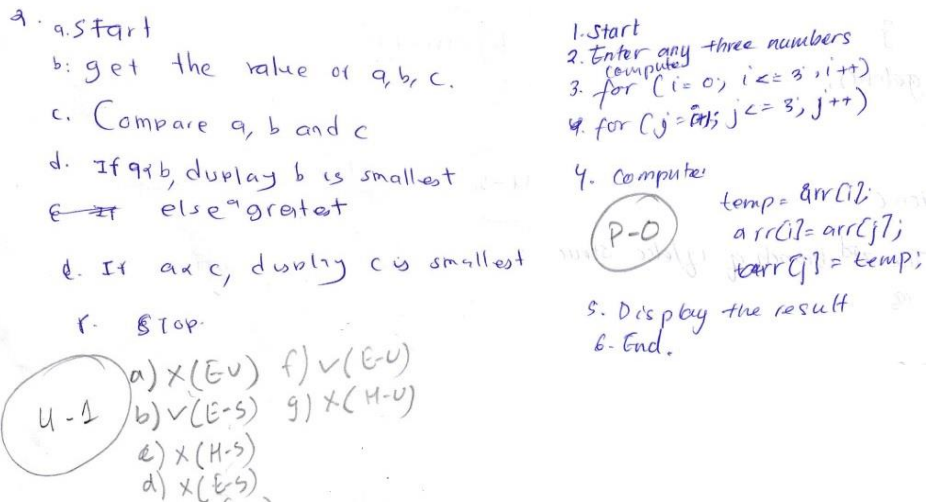 2.
a. Start
b: get the value of a, b, c.
c. Compare a, b and c
d. If a<b, duplay b is smallest
else a greatest
e. If a< c, dusplay c is smallest
f. STOP.
U-1
a) X(E-U) f) v(E-U)
b) v(E-S) g) X(H-U)
c) X(H-S)
d) X(E-S)
1. Start
2. Enter any three numbers
3. compute
for (i=0; i<=3; i++)
4. for (j= j<=3; j++)
4. Compute
P-0
temp = arr[i];
arr[i]= arr[j];
arr[j] = temp;
5. Display the result
6. End.